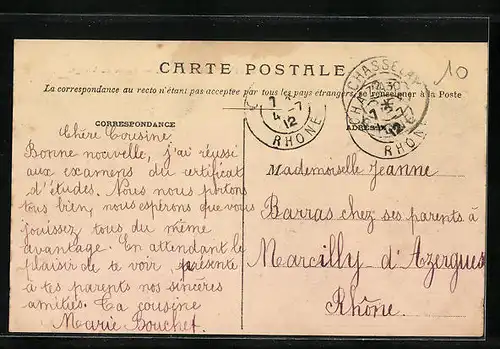 CARTE POSTALE
La correspondance au recto n'étant pas acceptée par tous les pays étrangers, se renseigner à la Poste
10
CHASSELAY
RHONE
7
4 -7
12
RHONE
CORRESPONDANCE
ADRESSE
Chère Cousine
Bonne nouvelle, j'ai réussi
aux examens du certificat
d'études. Nous nous portons
tous bien, nous espérons que vous
jouissez tous du même
avantage. En attendant le
plaisir de te voir, présente
à tes parents nos sincères
amitiés. Ta cousine
Marie Bouchet.
Mademoiselle Jeanne
Barras chez ses parents à
Marcilly d'Azergues
Rhône.